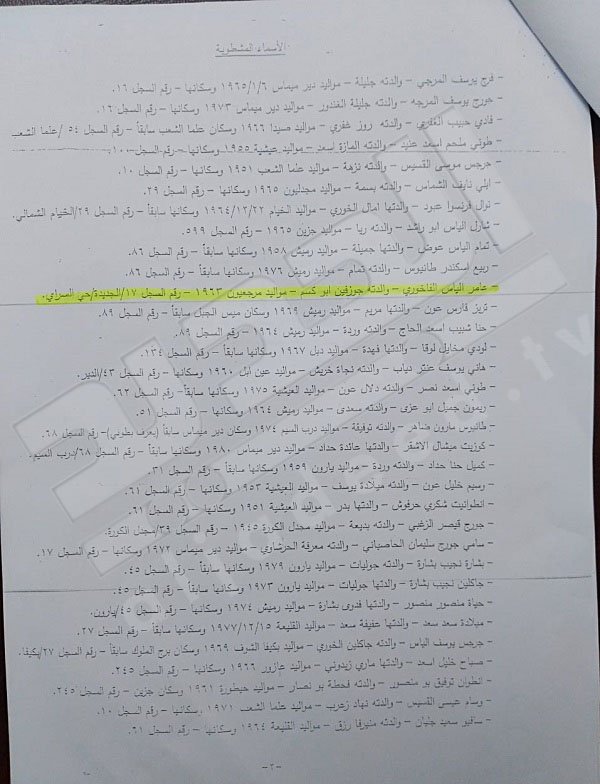 الأسماء المشطوبة
- فرج يوسف المرجي – والدته جليلة – مواليد دير ميماس ١٩٦٥/١/٦ وسكانها – رقم السجل ١٦.
- جورج يوسف المرجه – والدته جليلة الغندور – مواليد دير ميماس ١٩٧٣ وسكانها – رقم السجل ١٦.
- فادي حبيب الغفري – والدته روز غفري – مواليد صيدا ١٩٦٦ وسكان علما الشعب سابقاً – رقم السجل ٥٤ /علما الشعب
- طوني ملحم اسعد عيد – والدته المازة اسعد – مواليد عيشية ١٩٥٥ وسكانها – رقم السجل ١٠٠.
- جرجس موسى القسيس – والدته نزهة – مواليد علما الشعب ١٩٥١ وسكانها – رقم السجل ١٠.
- ايلي نايف الشماس – والدته بسمة – مواليد مجدليون ١٩٦٥ وسكانها – رقم السجل ٢٩.
- نوال فرنسوا عبود – والدتها امال الخوري – مواليد الخيام ١٩٦٤/١٢/٢٢ وسكانها سابقاً – رقم السجل ٢٩/الخيام الشمالي.
- شارل الياس ابو راشد – والدته ريا – مواليد جزين ١٩٦٥ – رقم السجل ٥٩٩.
- تمام الياس عوض – والدتها جميلة – مواليد رميش ١٩٥٨ وسكانها سابقاً – رقم السجل ٨٦.
- ربيع اسكندر طانيوس – والدته تمام – مواليد رميش ١٩٧٦ وسكانها سابقاً – رقم السجل ٨٦.
- عامر الياس الفاخوري – والدته جوزفين ابو كسم – مواليد مرجعيون ١٩٦٣ – رقم السجل ١٧/الجديدة/حي السراي.
- تريز فارس عون – والدتها مريم – مواليد رميش ١٩٦٩ وسكان ميس الجبل سابقاً – رقم السجل ٨٩.
- حنا شبيب اسعد الحاج – والدته وردة – مواليد رميش ١٩٦٤ – رقم السجل ٨٩.
- لودي مخايل لوقا – والدتها فهدة – مواليد دبل ١٩٦٧ وسكانها سابقاً – رقم السجل ١٣٤.
- هاني يوسف عنتر دياب – والدته نجاة خريش – مواليد عين ابل ١٩٦٠ وسكانها – رقم السجل ٤٣/الدير.
- طوني اسعد نصر – والدته دلال عون – مواليد العيشية ١٩٧٥ وسكانها سابقاً – رقم السجل ٦٣.
- ريمون جميل ابو عزى – والدته سعدى – مواليد رميش ١٩٦٤ وسكانها – رقم السجل ٥١.
- طانيوس مارون ضاهر – والدته توفيقة – مواليد درب السيم ١٩٧٤ وسكان دير ميماس سابقاً (يعرف بطوني) – رقم السجل ٦٨.
- كوزيت ميشال الاشقر – والدتها عائدة حداد – مواليد دير ميماس ١٩٨٠ وسكانها سابقاً – رقم السجل ٦٨/درب السيم.
- كميل حنا حداد – والدته وردة – مواليد يارون ١٩٥٩ وسكانها سابقاً – رقم السجل ٣١.
- وسيم خليل عون – والدته ميلادة يوسف – مواليد العيشية ١٩٥٣ وسكانها – رقم السجل ٦١.
- انطوانيت شكري حرفوش – والدتها بدر – مواليد العيشية ١٩٥١ وسكانها – رقم السجل ٦١.
- جورج قيصر الزغبي – والدته بديعة – مواليد مجدل الكورة ١٩٤٥ – رقم السجل ٣٩/مجدل الكورة.
- سامي جورج سليمان الحاصباني – والدته معرفة الحرشاوي – مواليد دير ميماس ١٩٧٢ وسكانها – رقم السجل ١٧.
- بشارة نجيب بشارة – والدته جوليات – مواليد يارون ١٩٧٩ وسكانها سابقاً – رقم السجل ٤٥.
- جاكلين نجيب بشارة – والدتها جوليات – مواليد يارون ١٩٧٣ وسكانها – رقم السجل ٤٥.
- حياة منصور منصور – والدتها فدوى بشارة – مواليد رميش ١٩٧٤ وسكانها – رقم السجل ٤٥/يارون.
- ميلادة سعد سعد – والدتها عفيفة سعد – مواليد القليعة ١٩٧٧/١٢/١٥ وسكانها سابقاً – رقم السجل ٢٧.
- جرجس يوسف الياس – والدته جاكلين الخوري – مواليد بكيفا الشوف ١٩٦٩ وسكان برج الملوك سابقاً – رقم السجل ٢٧/بكيفا.
- صباح خليل اسعد – والدتها ماري زيدوني – مواليد عازور ١٩٦٦ وسكانها – رقم السجل ٢٤٥.
- انطوان توفيق بو منصور – والدته فحطة بو نصار – مواليد حيطورة ١٩٦١ وسكان جزين – رقم السجل ٢٤٥.
- وسام عيسى القسيس – والدته نهاد زعرب – مواليد علما الشعب ١٩٧١ وسكانها – رقم السجل ١٠.
- سافيو سعيد جلبان – والدته منيرفا رزق – مواليد القليعة ١٩٦٤ وسكانها – رقم السجل ٦١.
-٢-